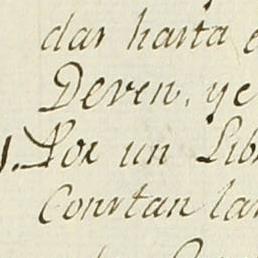 dar hasta e
Deven, ye
Por un Lib
Constan la